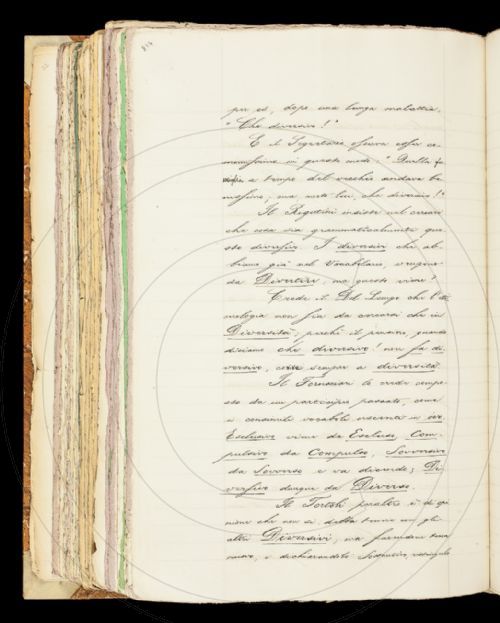 per es., dopo una lunga malattia,
"Che diversivo!"
E il Segretario osserva esser co-
munissimo in questo modo. "Quella
a tempo del vecchio andava be-
nissimo; ma morto lui, che diversivo!"
Il Rigutini insiste nel cercare
che cosa sia grammaticalmente que-
sto diversivo. I diversivi che ab-
biamo già nel Vocabolario, vengono
da Divertire, ma questo viene?
Crede il Del Lungo che l'eti-
mologia non sia da cercarsi che in
Diversità; perchè il popolo, quando
diciamo che diversivo! non fa di-
versivo, sempre a diversità.
Il Tortoli crede compo-
sto da un participio passato, come
i consimili vocaboli uscenti in ivo,
Esclusivo viene da Escluso, Com-
pulsivo da Compulso, Sovversivo
da Sovverso e va dicendo; Di-
versivo dunque da Diverso.
Il Tortoli peraltro è di opi-
nione che non si debba porre con gli
altri Diversivi, ma farne un tema
nuovo, e dichiarandolo Sostantivo,